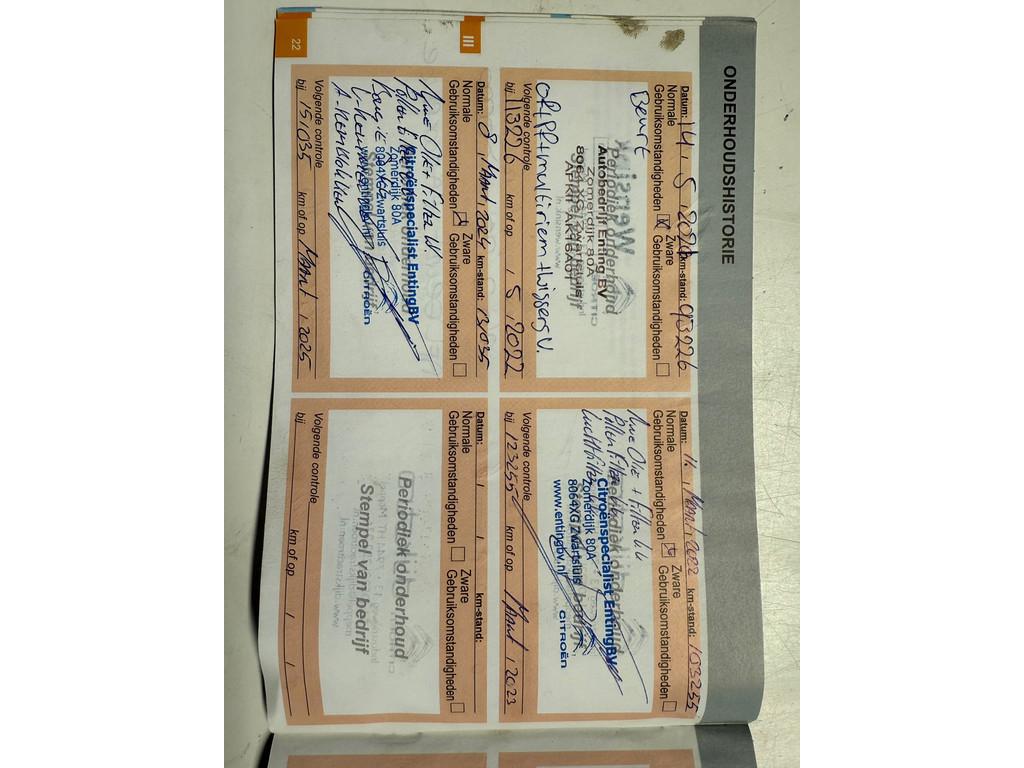 ONDERHOUDSHISTORIE
Datum: 14 , 5 , 2020 km-stand: 93226
Normale Gebruiksomstandigheden Zware Gebruiksomstandigheden
Beurt
Periodiek onderhoud
Autobedrijf Enting BV
Zomerdijk 80A
8064 XG Zwartsluis
Volgende controle
bij 113226 km of op 1 , 5 , 2022
Datum: 11 , Maart , 2022 km-stand: 103255
Normale Gebruiksomstandigheden Zware Gebruiksomstandigheden
Olie + Filter
Pollen Filter
Luchtfilter
Periodiek onderhoud
Citroënspecialist EntingBV
Zomerdijk 80A
8064XG Zwartsluis
www.entingbv.nl
CITROËN
Volgende controle
bij 123255 km of op Maart , 2023
Datum: 8 , Maart , 2024 km-stand: 131035
Normale Gebruiksomstandigheden Zware Gebruiksomstandigheden
Olie + Filter
Pollen Filter
Citroënspecialist EntingBV
Zomerdijk 80A
8064XG Zwartsluis
www.entingbv.nl
CITROËN
Volgende controle
bij 151035 km of op Maart , 2025
Datum: / / km-stand:
Normale Gebruiksomstandigheden Zware Gebruiksomstandigheden
Periodiek onderhoud
Stempel van bedrijf
Volgende controle
bij km of op / /
III
22